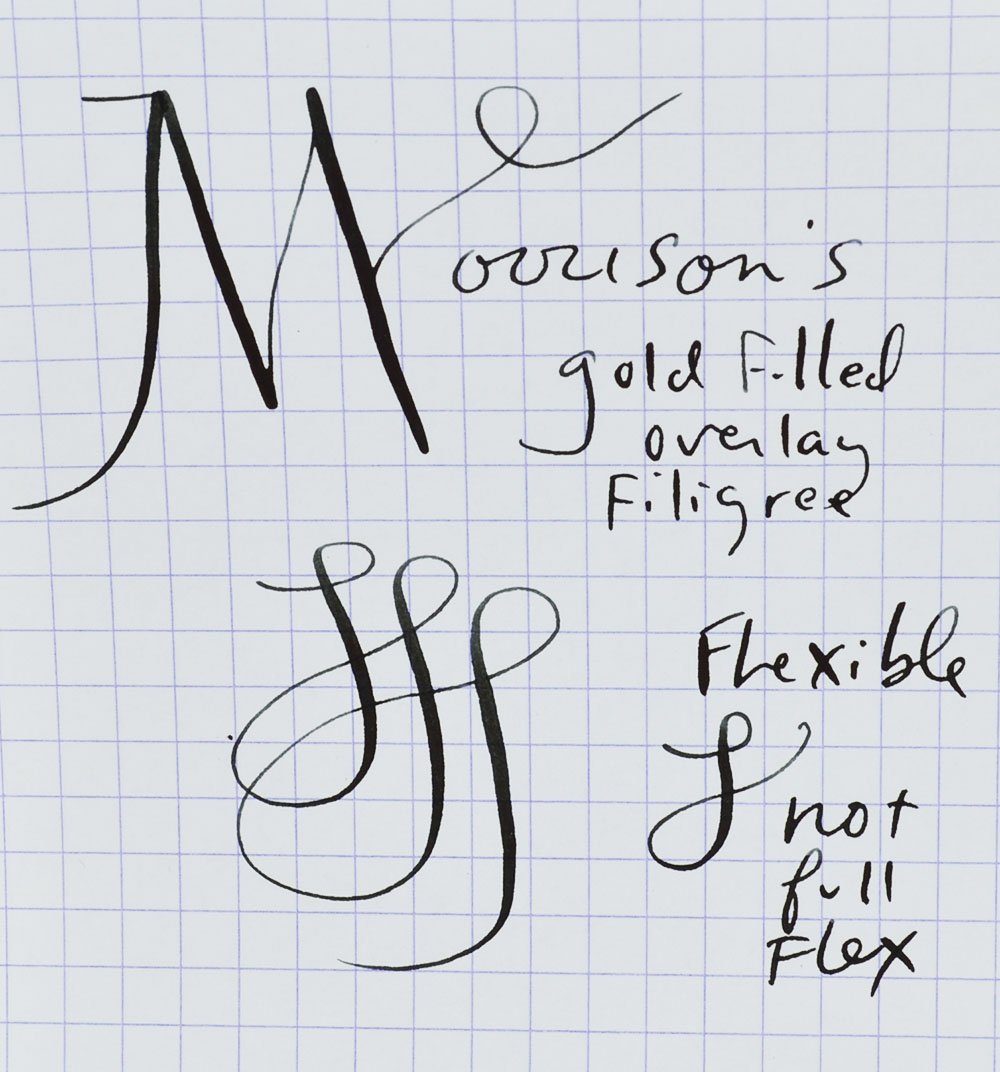 Morrison's
gold filled
overlay
Filigree
Flexible
not
full
Flex